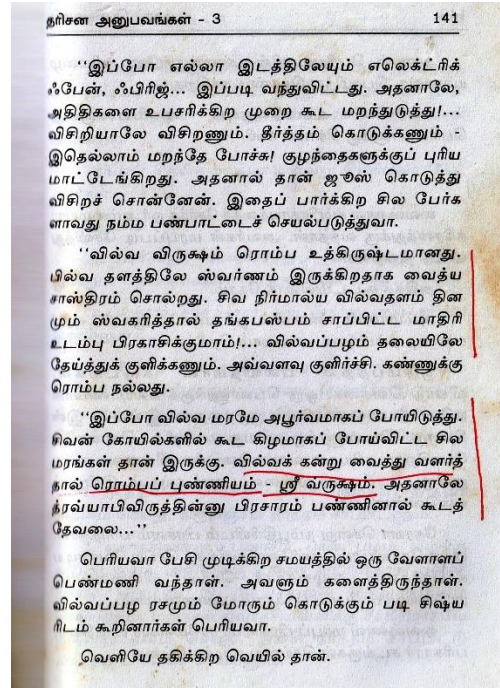 தரிசன அனுபவங்கள் - 3 141
‘‘இப்போ எல்லா இடத்திலேயும் எலெக்ட்ரிக்
ஃபேன், ஃபிரிஜ்... இப்படி வந்துவிட்டது. அதனாலே,
அதிதிகளை உபசரிக்கிற முறை கூட மறந்துடுத்து!...
விசிறியாலே விசிறணும். தீர்த்தம் கொடுக்கணும் -
இதெல்லாம் மறந்தே போச்சு! குழந்தைகளுக்குப் புரிய
மாட்டேங்கிறது. அதனால் தான் ஜூஸ் கொடுத்து
விசிறச் சொன்னேன். இதைப் பார்க்கிற சில பேர்க
ளாவது நம்ம பண்பாட்டைச் செயல்படுத்துவா.
‘‘வில்வ விருக்ஷம் ரொம்ப உத்கிருஷ்டமானது.
பில்வ தளத்திலே ஸ்வர்ணம் இருக்கிறதாக வைத்ய
சாஸ்திரம் சொல்றது. சிவ நிர்மால்ய வில்வதளம் தின
மும் ஸ்வகரித்தால் தங்கபஸ்பம் சாப்பிட்ட மாதிரி
உடம்பு பிரகாசிக்குமாம்!... வில்வப்பழம் தலையிலே
தேய்த்துக் குளிக்கணும். அவ்வளவு குளிர்ச்சி. கண்ணுக்கு
ரொம்ப நல்லது.
‘‘இப்போ வில்வ மரமே அபூர்வமாகப் போயிடுத்து.
சிவன் கோயில்களில் கூட கிழமாகப் போய்விட்ட சில
மரங்கள் தான் இருக்கு. வில்வக் கன்று வைத்து வளர்த்
தால் ரொம்பப் புண்ணியம் - ஸ்ரீ வ்ருக்ஷம். அதனாலே
நீரவ்யாபிவிருத்தின்னு பிரசாரம் பண்ணினால் கூடத்
தேவலை...’’
பெரியவா பேசி முடிக்கிற சமயத்தில் ஒரு வேளாளப்
பெண்மணி வந்தாள். அவளும் களைத்திருந்தாள்.
வில்வப்பழ ரசமும் மோரும் கொடுக்கும் படி சிஷ்ய
ரிடம் கூறினார்கள் பெரியவா.
வெளியே தகிக்கிற வெயில் தான்.